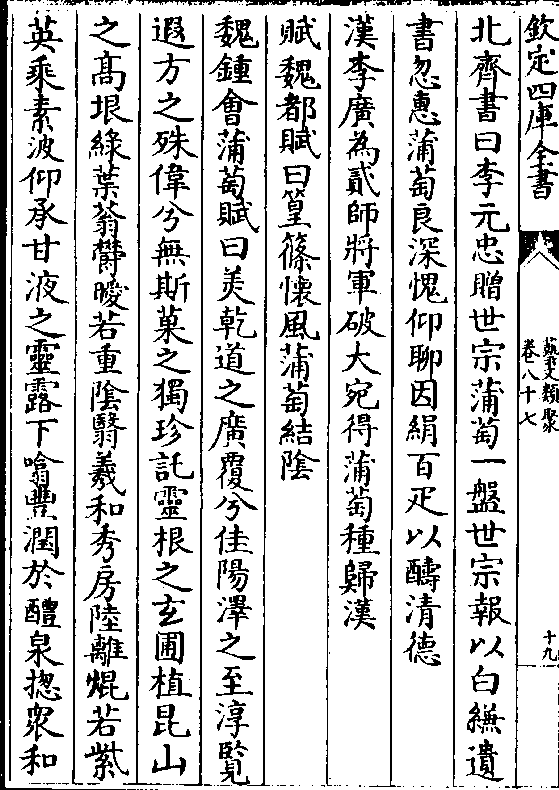 欽定四庫全書
藝文類聚
卷八十七
十九
北齊書曰李元忠贈世宗蒲萄一盤世宗報以白縑遺
書忽惠蒲萄良深愧仰聊因絹百疋以醻清德
漢李廣為貳師將軍破大宛得蒲萄種歸漢
賦魏都賦曰篁篠懷風蒲萄結陰
魏鍾會蒲萄賦曰美乾道之廣覆兮佳陽澤之至淳覽
遐方之殊偉兮無斯菓之獨珍託靈根之玄圃植昆山
之髙垠綠葉蓊欎曖若重陰翳羲和秀房陸離焜若紫
英乘素波仰承甘液之靈露下噏豐潤於醴泉揔衆和